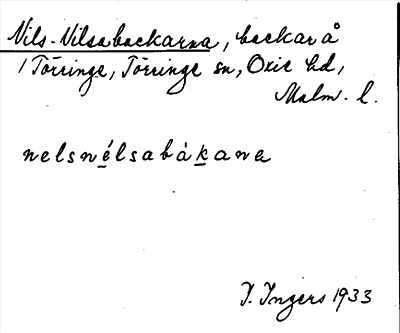 Nils-Nilsabackarna, backar å
1 Törringe, Törringe sn, Oxie hd,
Malm. l.
nelsnélsabákana
I. Ingers 1933